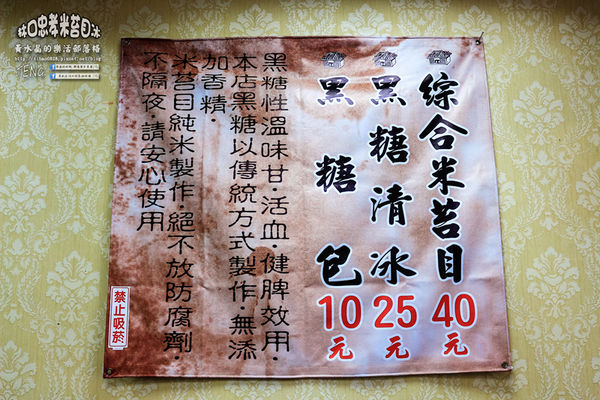 林口忠孝米苔目冰
黃水晶的樂活部落格
TENG
綜合米苔目40元
黑糖清冰25元
黑糖包10元
黑糖性溫味甘·活血·健脾效用·
本店黑糖以傳統方式製作·無添
加香精·
米苔目純米製作·絕不放防腐劑·
不隔夜·請安心使用
禁止吸菸